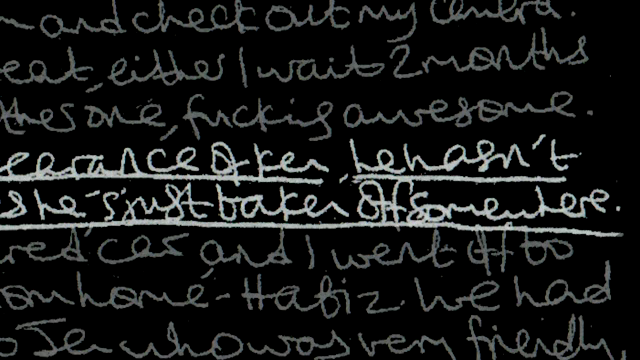 n and check out my camera.
eat, either I wait 2 months
other one, fucking awesome.
earance of ken, he hasn't
s he's just taken off somewhere.
red car, and I went off to
om home - Hafiz. We had
o Jen who was very friendly.